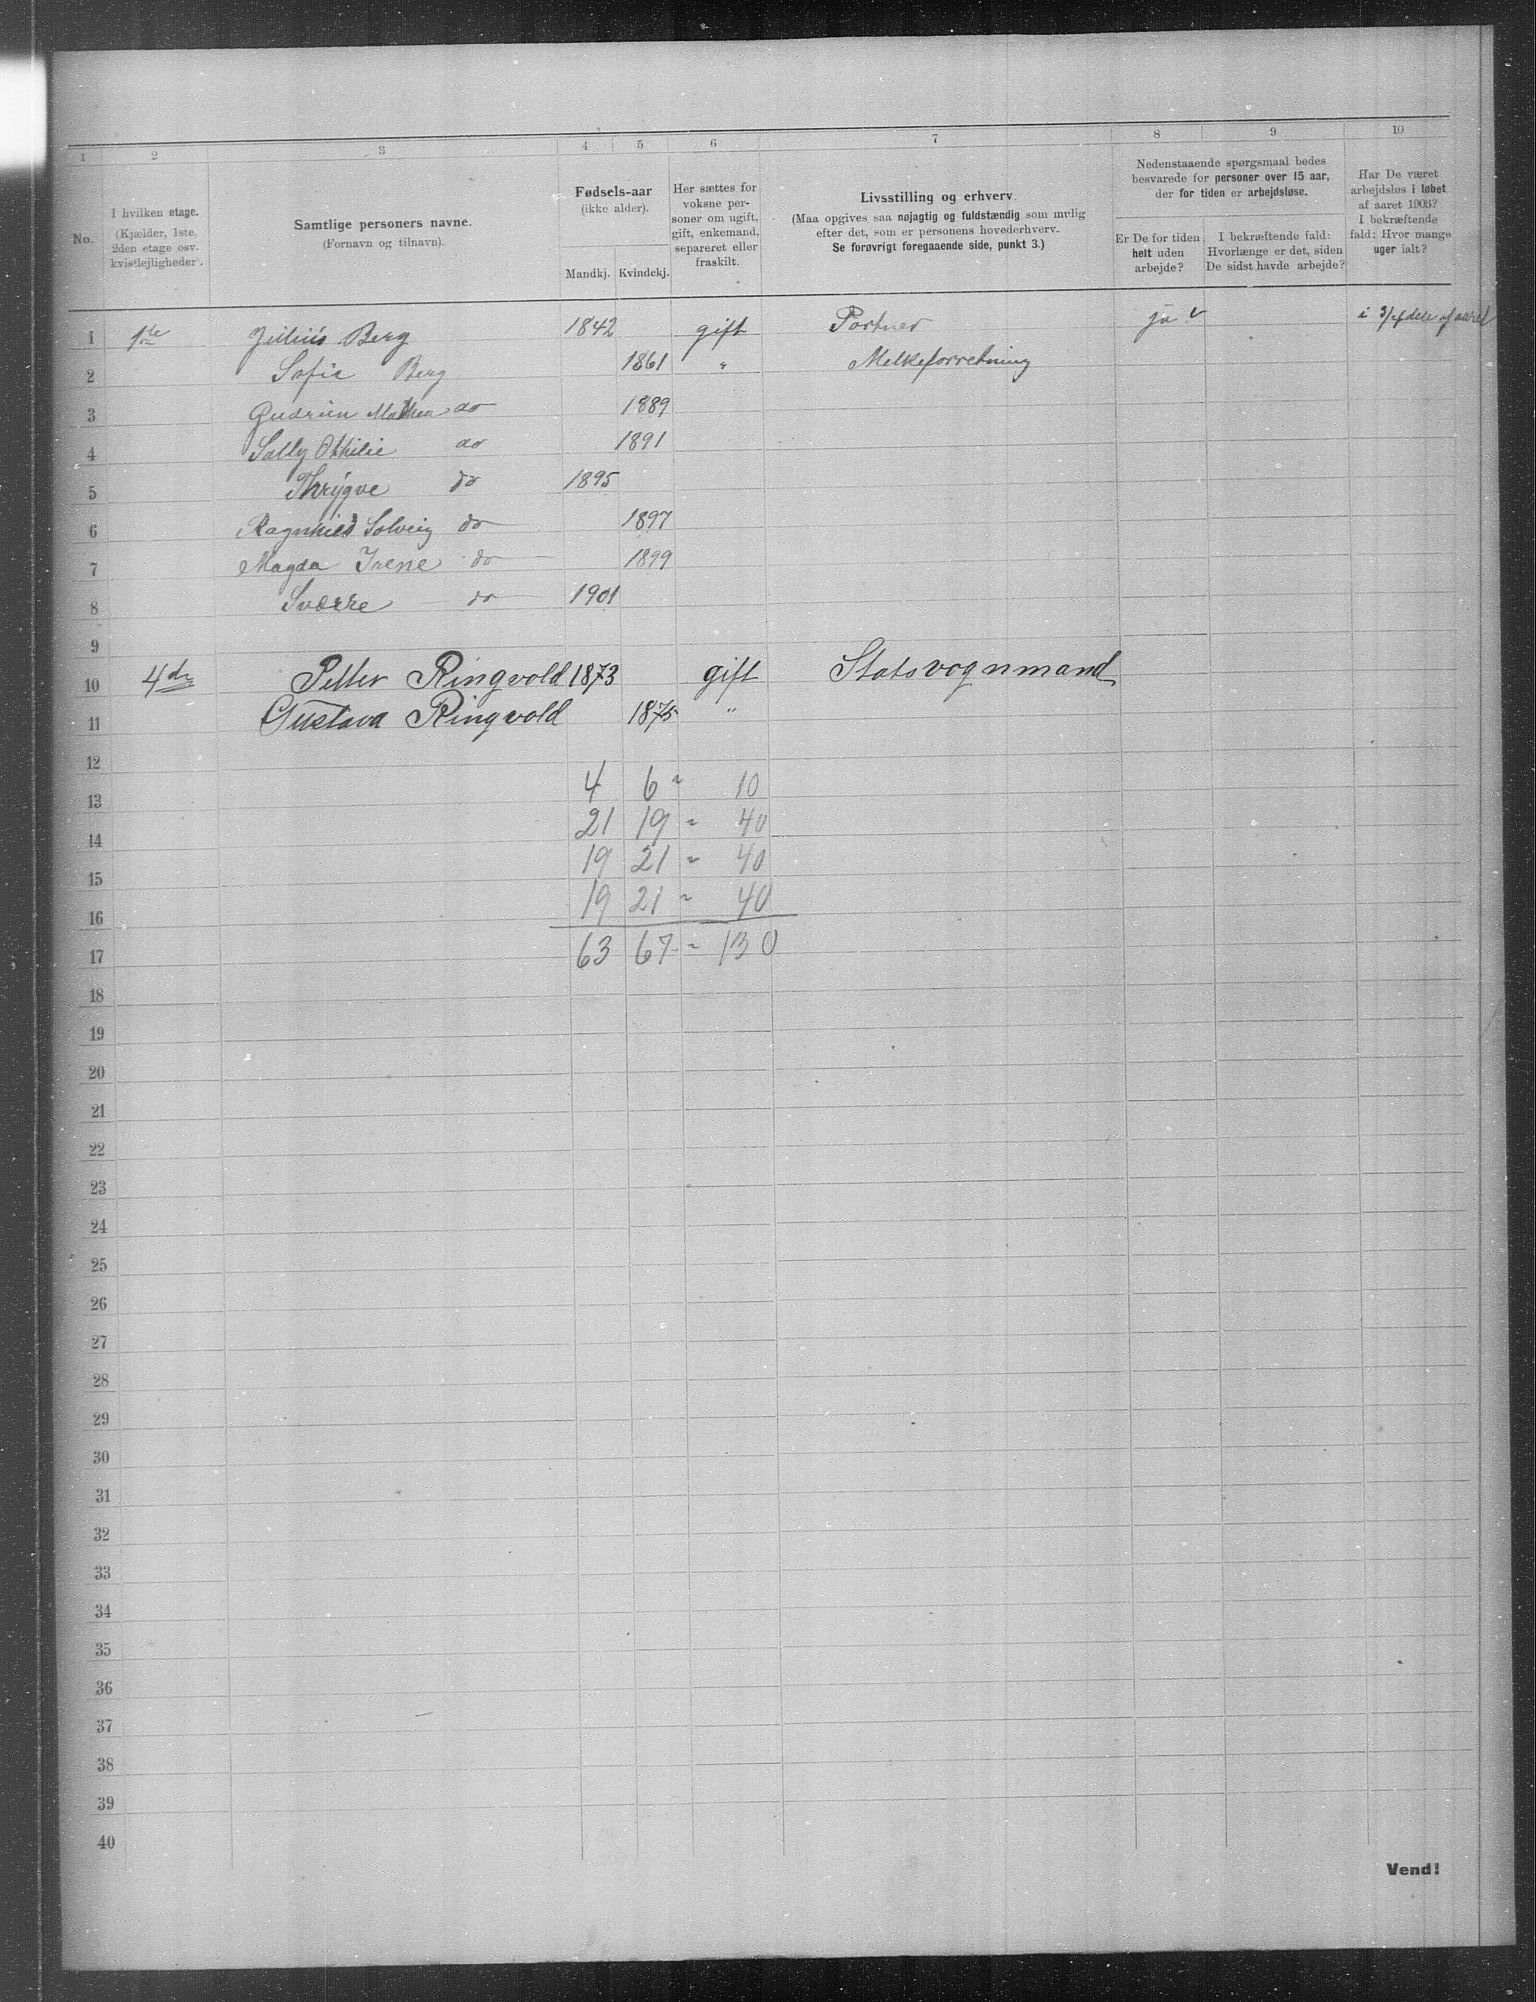 1 2 3 4 5 6 7 8 9 10
No.
I hvilken etage.
(Kjælder, 1ste,
2den etage osv.
kvistlejligheder).
Samtlige personers navne.
(Fornavn og tilnavn).
Fødsels-aar
(ikke alder).
Mandkj. Kvindekj.
Her sættes for
voksne per-
soner om ugift,
gift, enkemand,
separeret eller
fraskilt.
Livsstilling og erhverv.
(Maa opgives saa nøjagtig og fuldstændig som mulig
efter det, som er personens hovederhverv.
Se forøvrigt foregaaende side, punkt 3.)
Nedenstaaende spørgsmaal bedes
besvarede for personer over 15 aar,
der for tiden er arbejdsløse.
Er De for tiden
helt uden
arbejde?
I bekræftende fald:
Hvorlænge er det, siden
De sidst havde arbejde?
Har De været
arbejdsløs i løbet
af aaret 1903?
I bekræftende
fald: Hvor mange
uger ialt?
1 1ste Julius Berg 1842 gift Portner ja v i 3/4 dele af aaret
2 Sofie Berg 1861 " Melkeforretning
3 Gudrun Mathea do 1889
4 Sally Othilie do 1891
5 Thrygve do 1895
6 Ragnhild Solveig do 1897
7 Magda Irene do 1899
8 Sværre do 1901
9
10 4de Petter Ringvold 1873 gift Statsvognmand
11 Gustava Ringvold 1875 "
12
13 4 6 " 10
14 21 19 " 40
15 19 21 " 40
16 19 21 " 40
17 63 67 " 130
18
19
20
21
22
23
24
25
26
27
28
29
30
31
32
33
34
35
36
37
38
39
40
Vend!